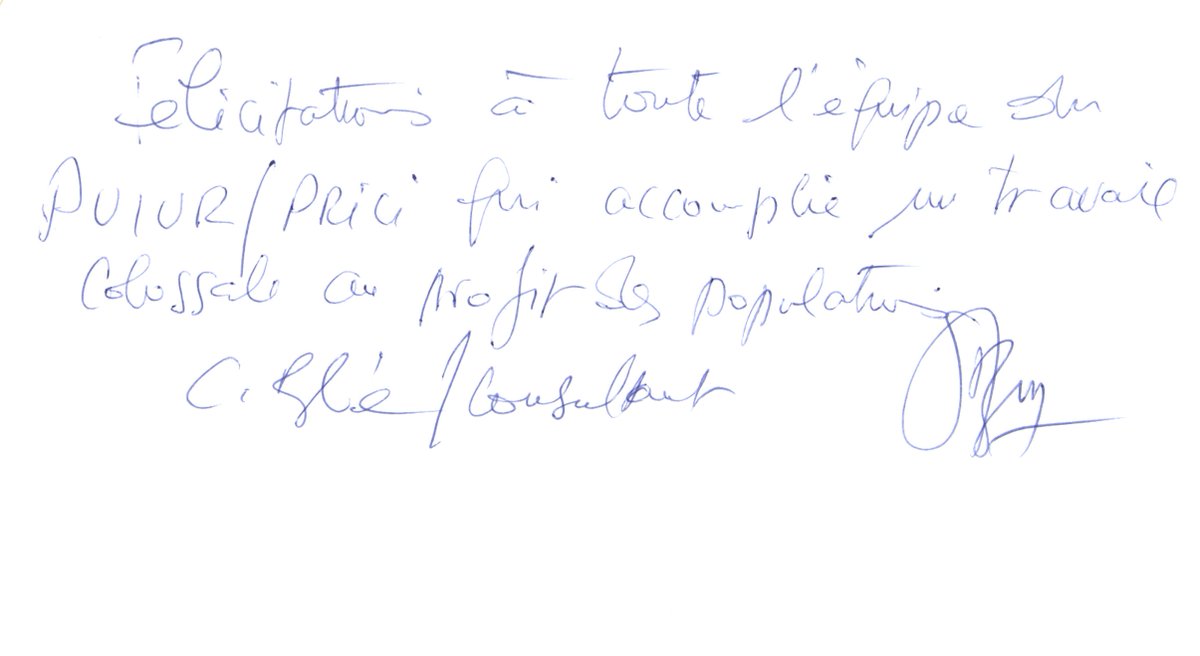 Félicitations à toute l'équipe du
PUIUR/PRICI qui accomplie un travail
colossale au profit des populations
C. Blé/Consultant